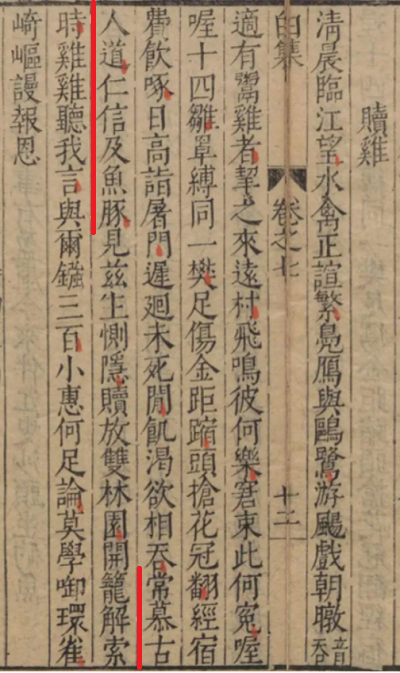 贖雞
清晨臨江望水禽正諠繁鳧鴈與鷗鷺游颺戲朝暾音吞
白集 卷之七 十二
適有鬻雞者挈之來遠村飛鳴彼何樂窘束此何冤喔
喔十四雛罩縛同一樊足傷金距蹜頭搶花冠翻經宿
費飲啄日高詣屠門遲廻未死閒飢渴欲相吞常慕古
人道仁信及魚豚見茲生惻隱贖放雙林園開籠解索
時雞雞聽我言與爾鏹三百小惠何足論莫學啣環雀
崎嶇謾報恩